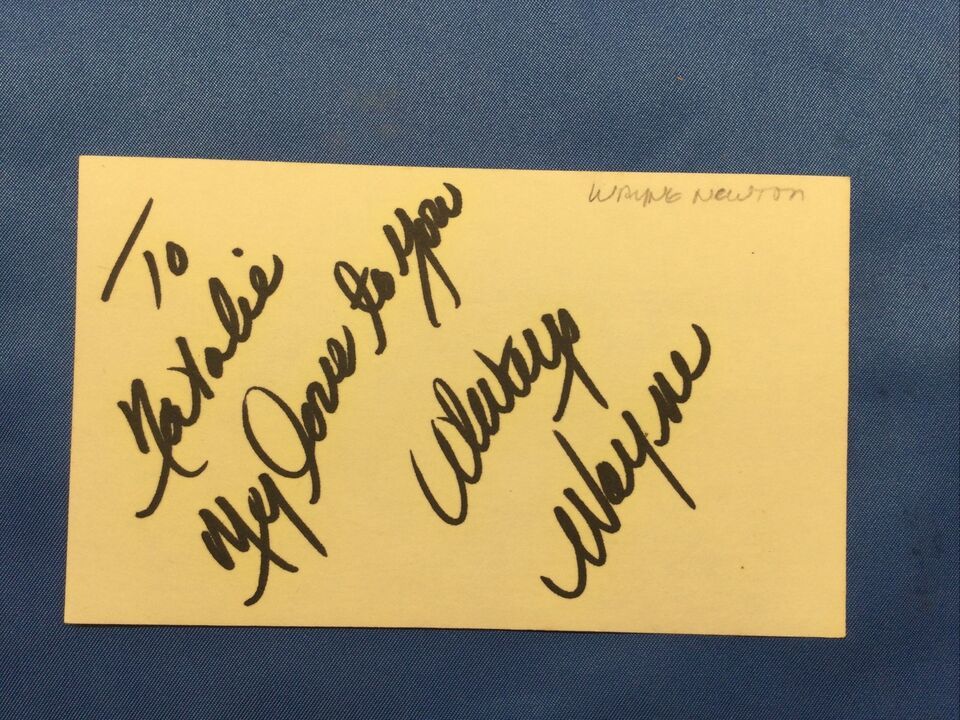 WAYNE NEWTON
To
Natalie
My Love to You
Always
Wayne